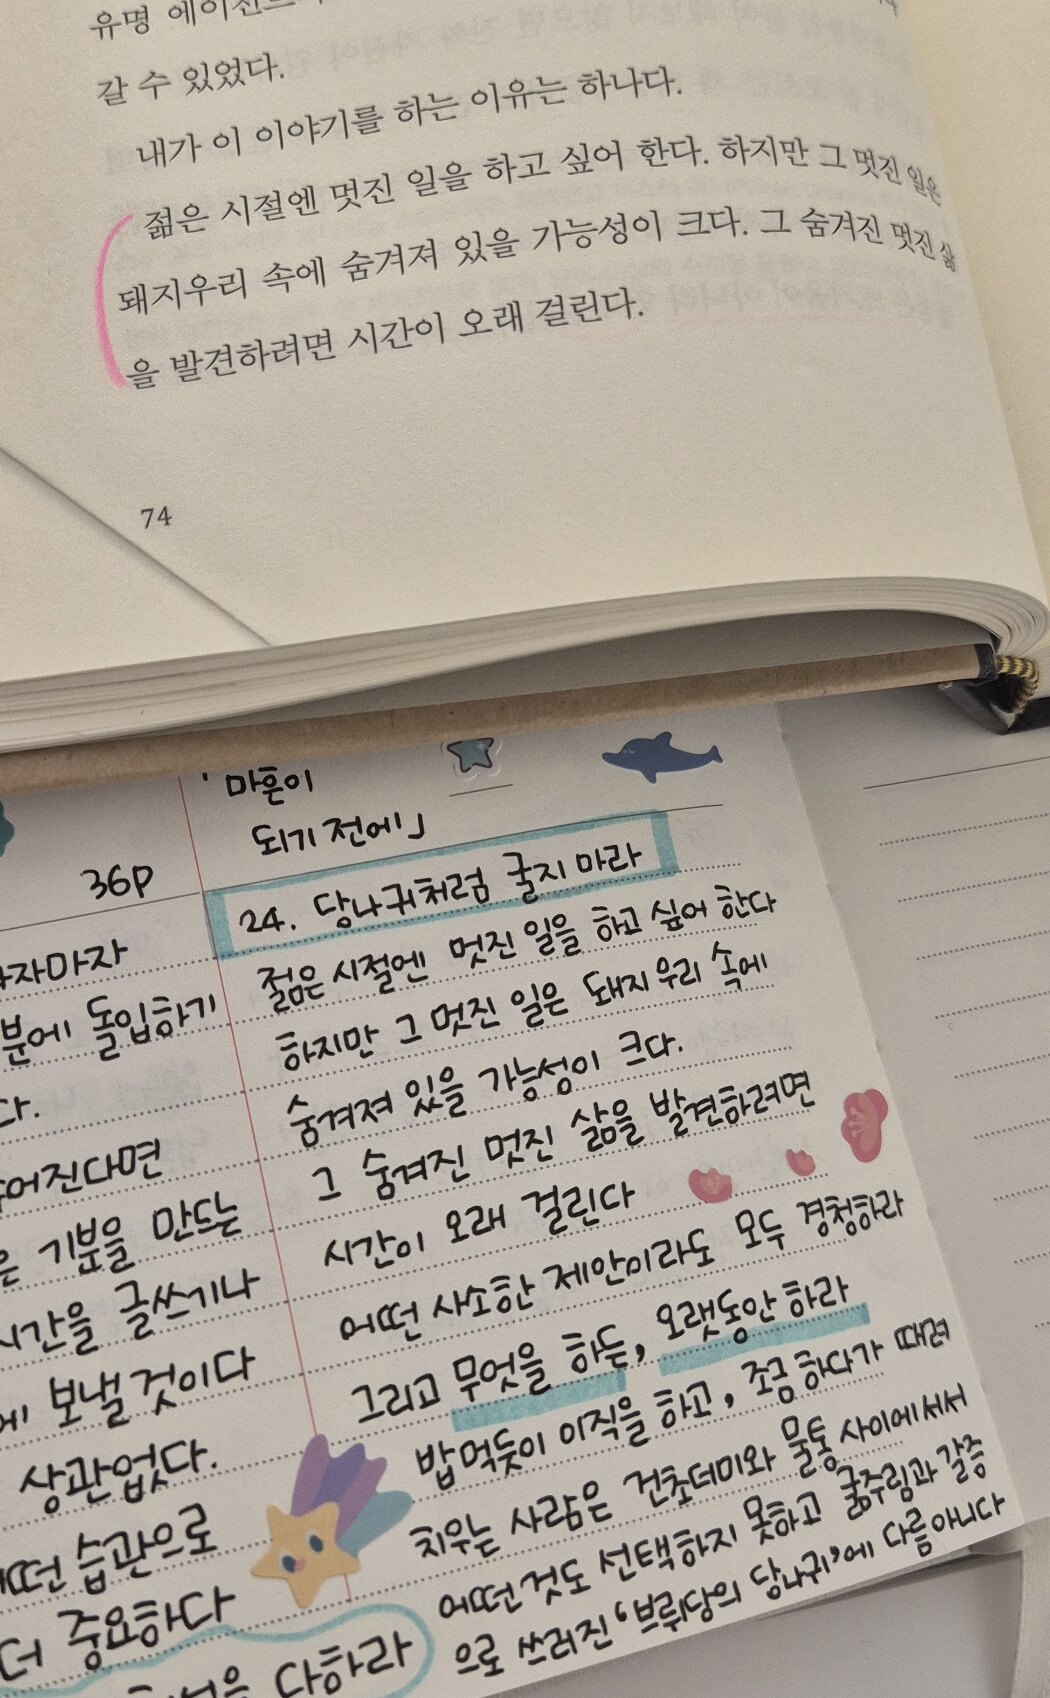 유명
갈 수 있었다.
내가 이 이야기를 하는 이유는 하나다.
젊은 시절엔 멋진 일을 하고 싶어 한다. 하지만 그 멋진 일은
돼지우리 속에 숨겨져 있을 가능성이 크다. 그 숨겨진 멋진 삶
을 발견하려면 시간이 오래 걸린다.
74
「마흔이
되기 전에」
36p
24. 당나귀처럼 굴지 마라
젊은 시절엔 멋진 일을 하고 싶어 한다
하지만 그 멋진 일은 돼지우리 속에
숨겨져 있을 가능성이 크다.
그 숨겨진 멋진 삶을 발견하려면
시간이 오래 걸린다
어떤 사소한 제안이라도 모두 경청하라
그리고 무엇을 하든, 오랫동안 하라
밥먹듯이 이직을 하고, 조금 하다가 때려
치우는 사람은 건초더미와 물통 사이에서서
어떤것도 선택하지 못하고 굶주림과 갈증
으로 쓰러진 '브뤼당의 당나귀'에 다름아니다
돌입하기
다.
기분을 만드는
시간을 글쓰기나
보낼 것이다
상관없다.
습관으로
더 중요하다
다하라